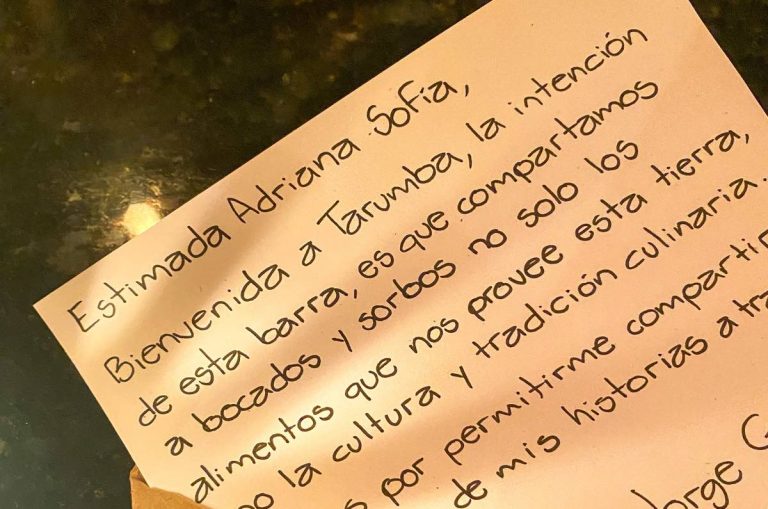 Estimada Adriana Sofía,
Bienvenida a Tarumba, la intención
de esta barra, es que compartamos
a bocados y sorbos no solo los
alimentos que nos provee esta tierra,
la cultura y tradición culinaria.
por permitirme
de mis historias a
Jorge